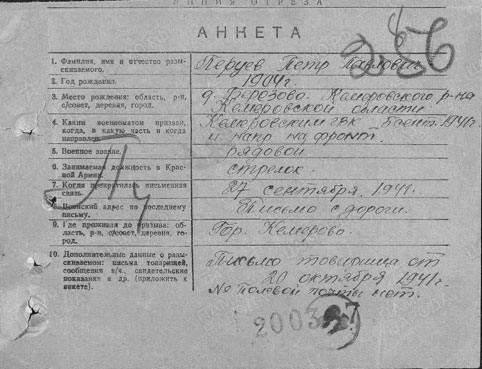 ЛИНИЯ ОТРЕЗА
АНКЕТА
1. Фамилия, имя и отчество разыскиваемого.
Перуев Петр Павлович
2. Год рождения.
1904г.
3. Место рождения: область, р-н, с/совет, деревня, город.
д. Березово. Кемеровского р-на
Кемеровской области
4. Каким военкоматом призван, когда, в какую часть и когда направлен.
Кемеровским ГВК 5 сент. 1941г
и напр. на фронт.
5. Военное звание.
рядовой
6. Занимаемая должность в Красной Армии.
стрелок.
7. Когда прекратилась письменная связь.
27 сентября. 1941г.
8. Воинский адрес по последнему письму.
Письмо с дороги.
9. Где проживал до призыва: область, р-н, с/совет, деревня, город.
Гор. Кемерово.
10. Дополнительные данные о разыскиваемом: письма товарищей, сообщения в/ч, свидетельские показания и др. (приложить к анкете).
Письмо товарища от
20 октября 1941г.
№ полевой почты нет.
2003